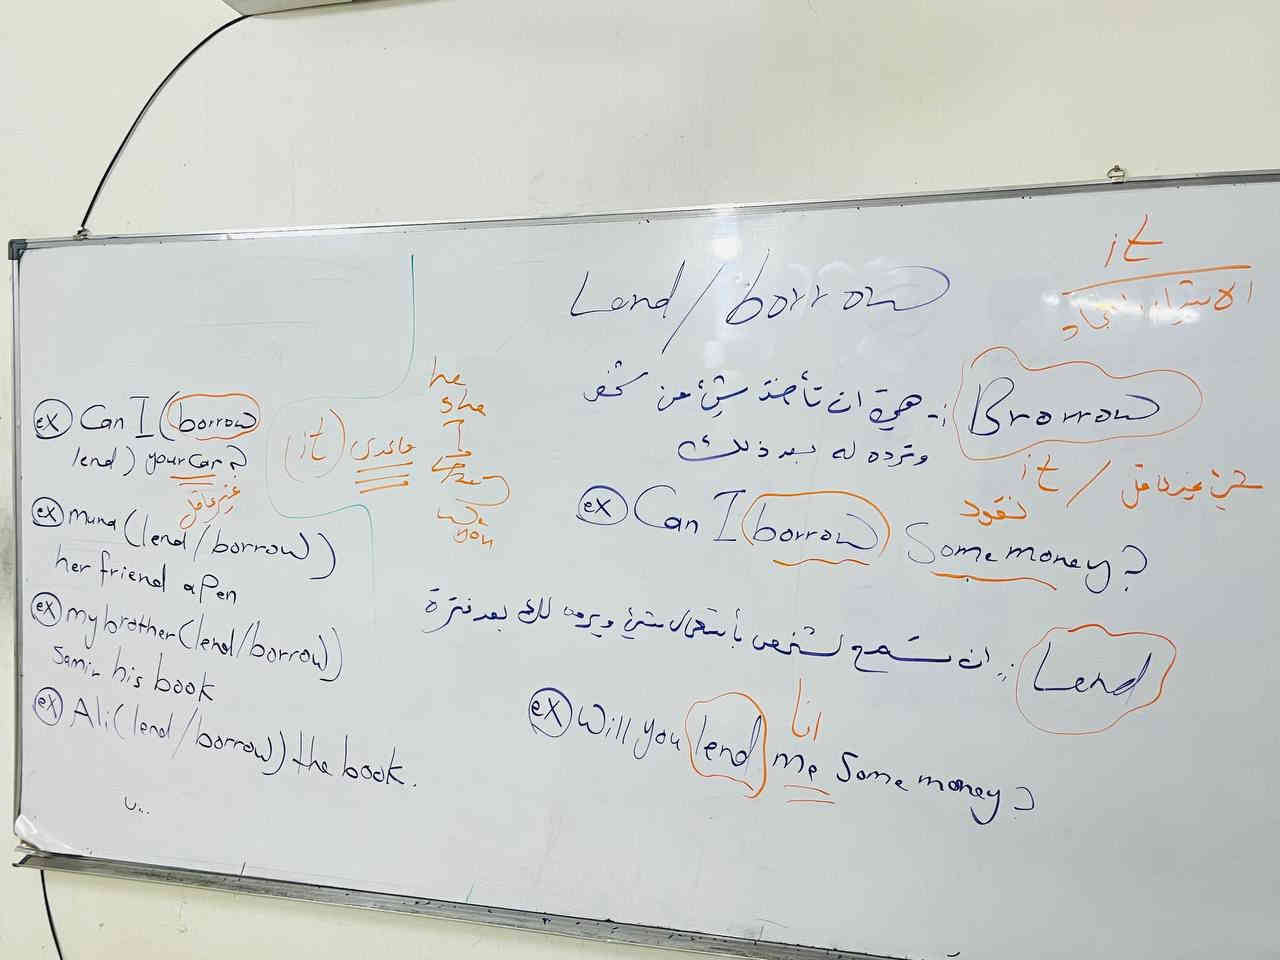 Lend / borrow
it
Brorrow :- هي ان تأخذ شيء من شخص
وترده له بعد ذلك
it / شيء غير عاقل
نقود
ex Can I borrow Some money?
Lend :- ان تسمح لشخص بأستعمال شيء ويرده لك بعد فترة
انا
ex Will you lend me Some money?
he
she
I
we
you
it
ex Can I (borrow
lend) your car?
غير عاقل
ex muna (lend / borrow)
her friend a Pen
ex my brother (lend/borrow)
Samir his book
ex Ali (lend / borrow) the book.